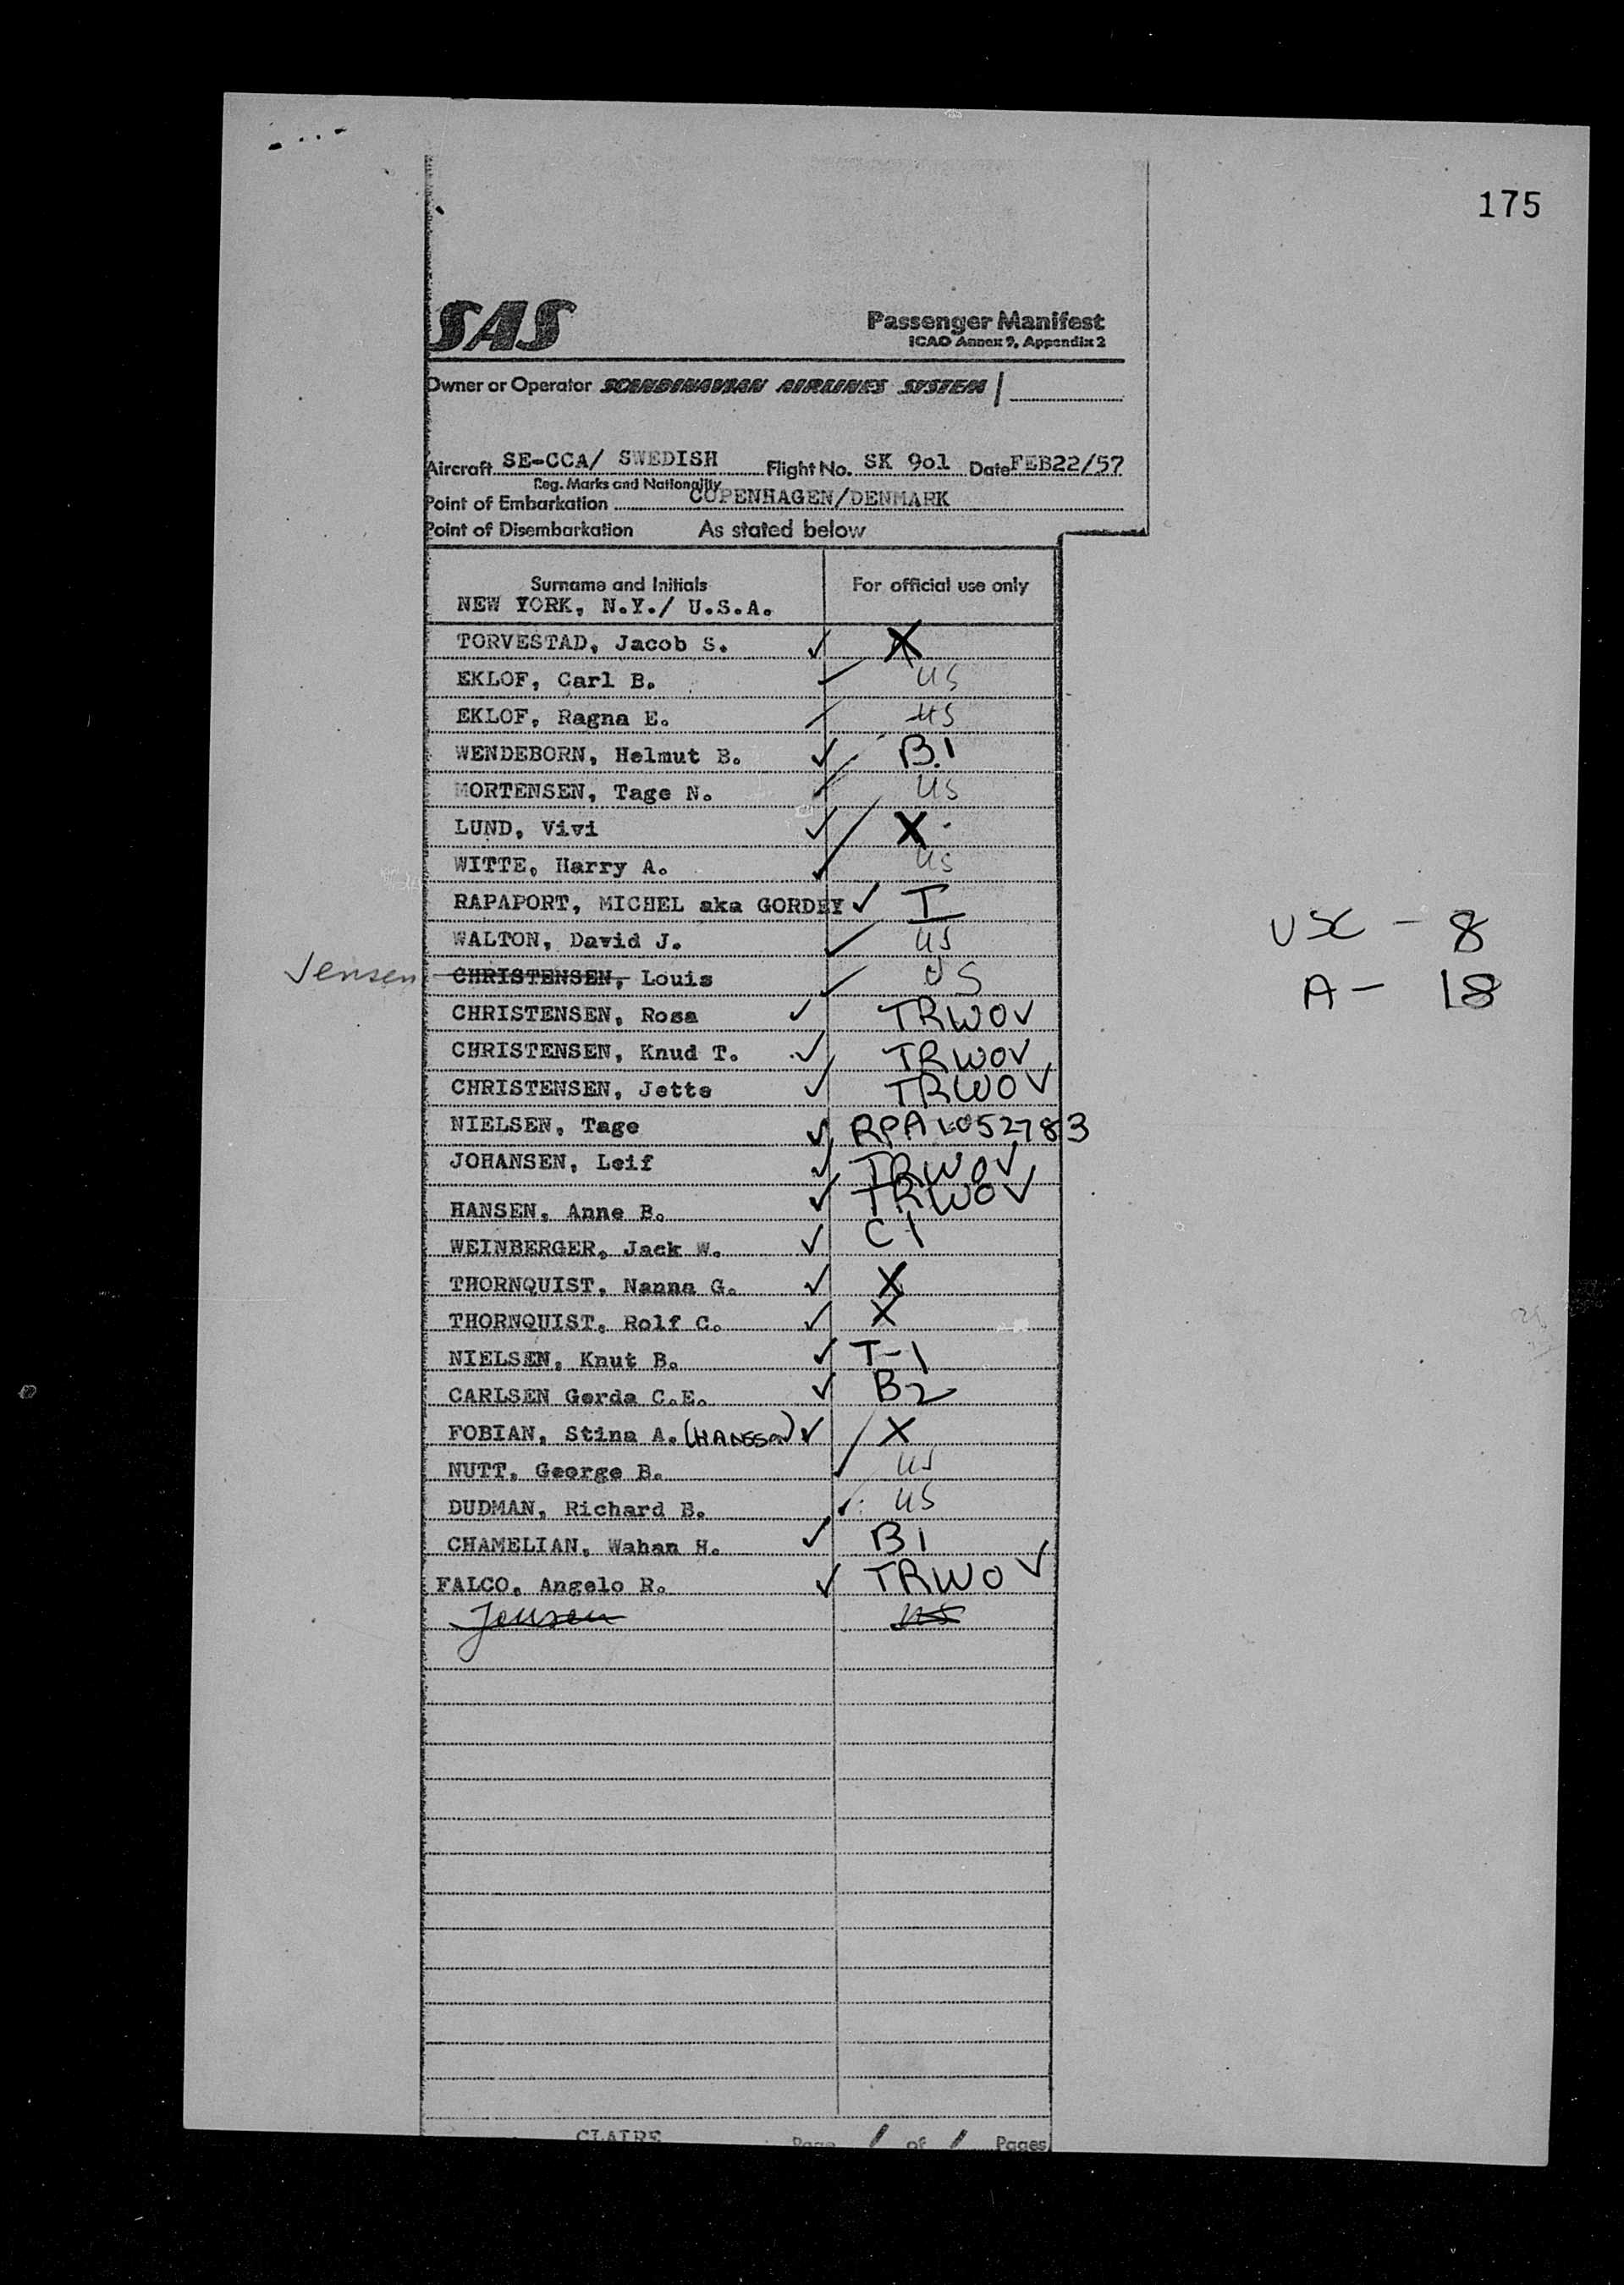 175
SAS
Passenger Manifest
ICAO Annex 9, Appendix 2
Owner or Operator SCANDINAVIAN AIRLINES SYSTEM
Aircraft SE-CCA/ SWEDISH Flight No. SK 901 Date FEB22/57
Reg. Marks and Nationality
Point of Embarkation COPENHAGEN/DENMARK
Point of Disembarkation As stated below
Surname and Initials For official use only
NEW YORK, N.Y./ U.S.A.
TORVESTAD, Jacob S. ✓ X
EKLOF, Carl B. ✓ US
EKLOF, Ragna E. ✓ US
WENDEBORN, Helmut B. ✓ B.1
MORTENSEN, Tage N. ✓ US
LUND, Vivi ✓ X
WITTE, Harry A. ✓ US
RAPAPORT, MICHEL aka GORDEY ✓ I
WALTON, David J. ✓ US
Jensen CHRISTENSEN, Louis ✓ US
CHRISTENSEN, Rosa ✓ TRWOV
CHRISTENSEN, Knud T. ✓ TRWOV
CHRISTENSEN, Jette ✓ TRWOV
NIELSEN, Tage ✓ RPA
JOHANSEN, Leif ✓ TRWOV
HANSEN, Anne B. ✓ TRWOV
WEINBERGER, Jack W. ✓ C-1
THORNQUIST, Nanna G. ✓ X
THORNQUIST, Rolf C. ✓ X
NIELSEN, Knut B. ✓ T-1
CARLSEN Gerda C.E. ✓ B2
FOBIAN, Stina A. (HANSSON) ✓ X
NUTT, George B. ✓ US
DUDMAN, Richard B. ✓ US
CHAMELIAN, Wahan H. ✓ B1
FALCO, Angelo R. ✓ TRWOV
Jensen US
CLAIRE Page 1 of 1 Pages
USC - 8
A - 18